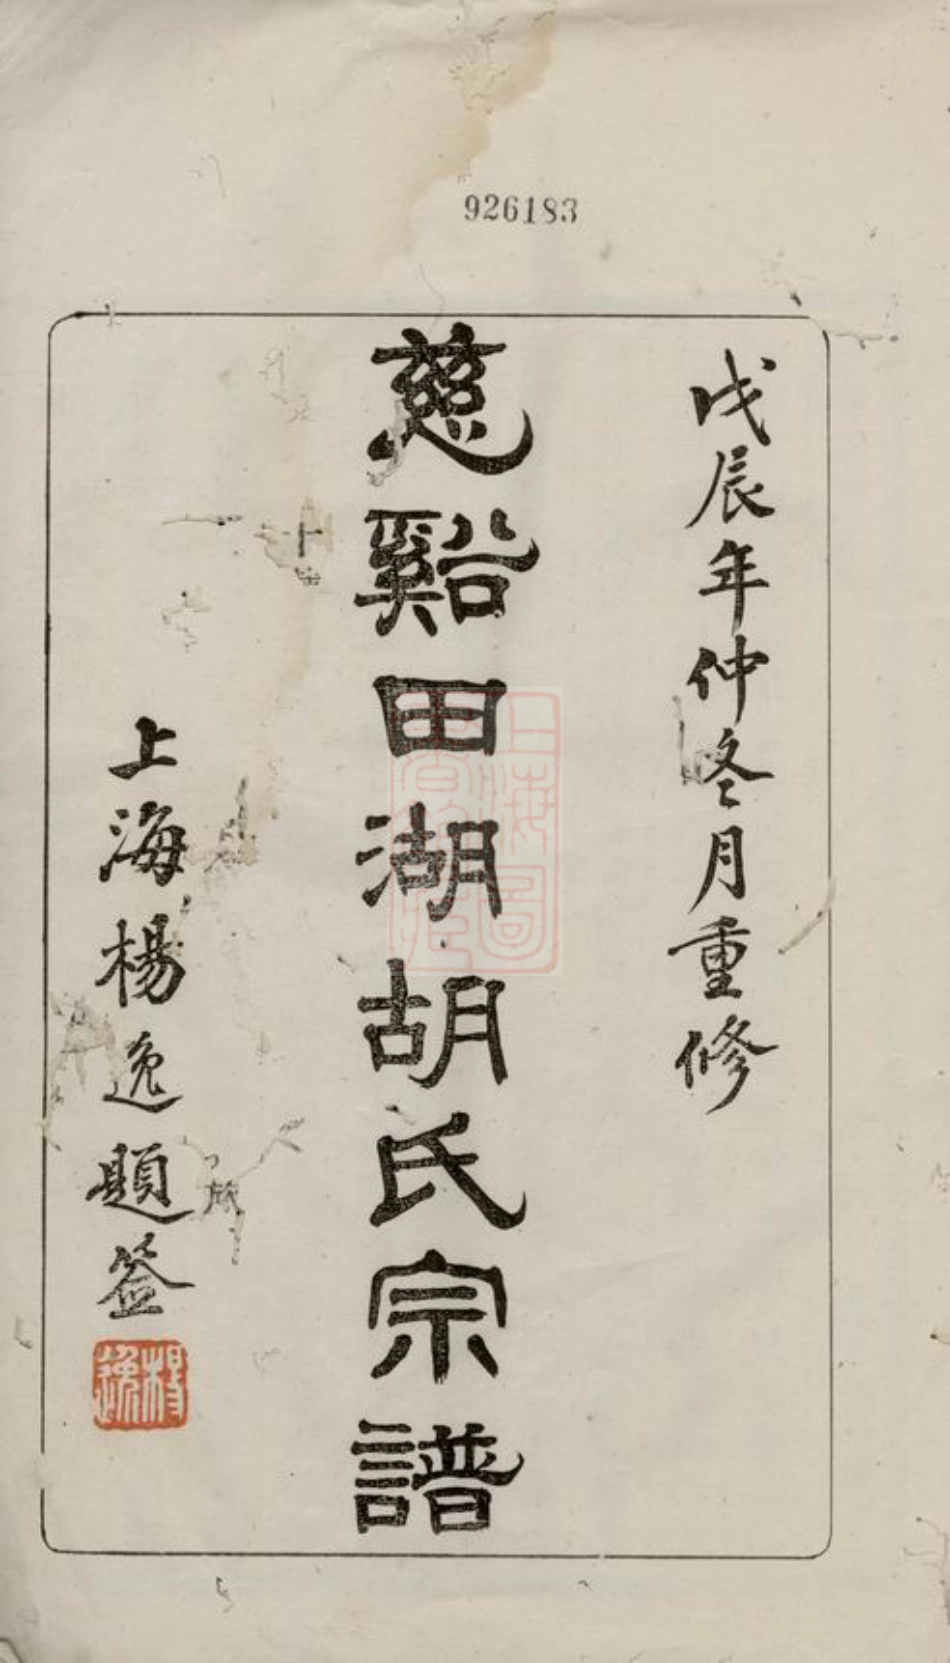 926183
戊辰年仲冬月重修
慈谿田湖胡氏宗譜
上海楊逸題签
楊逸
上海圖